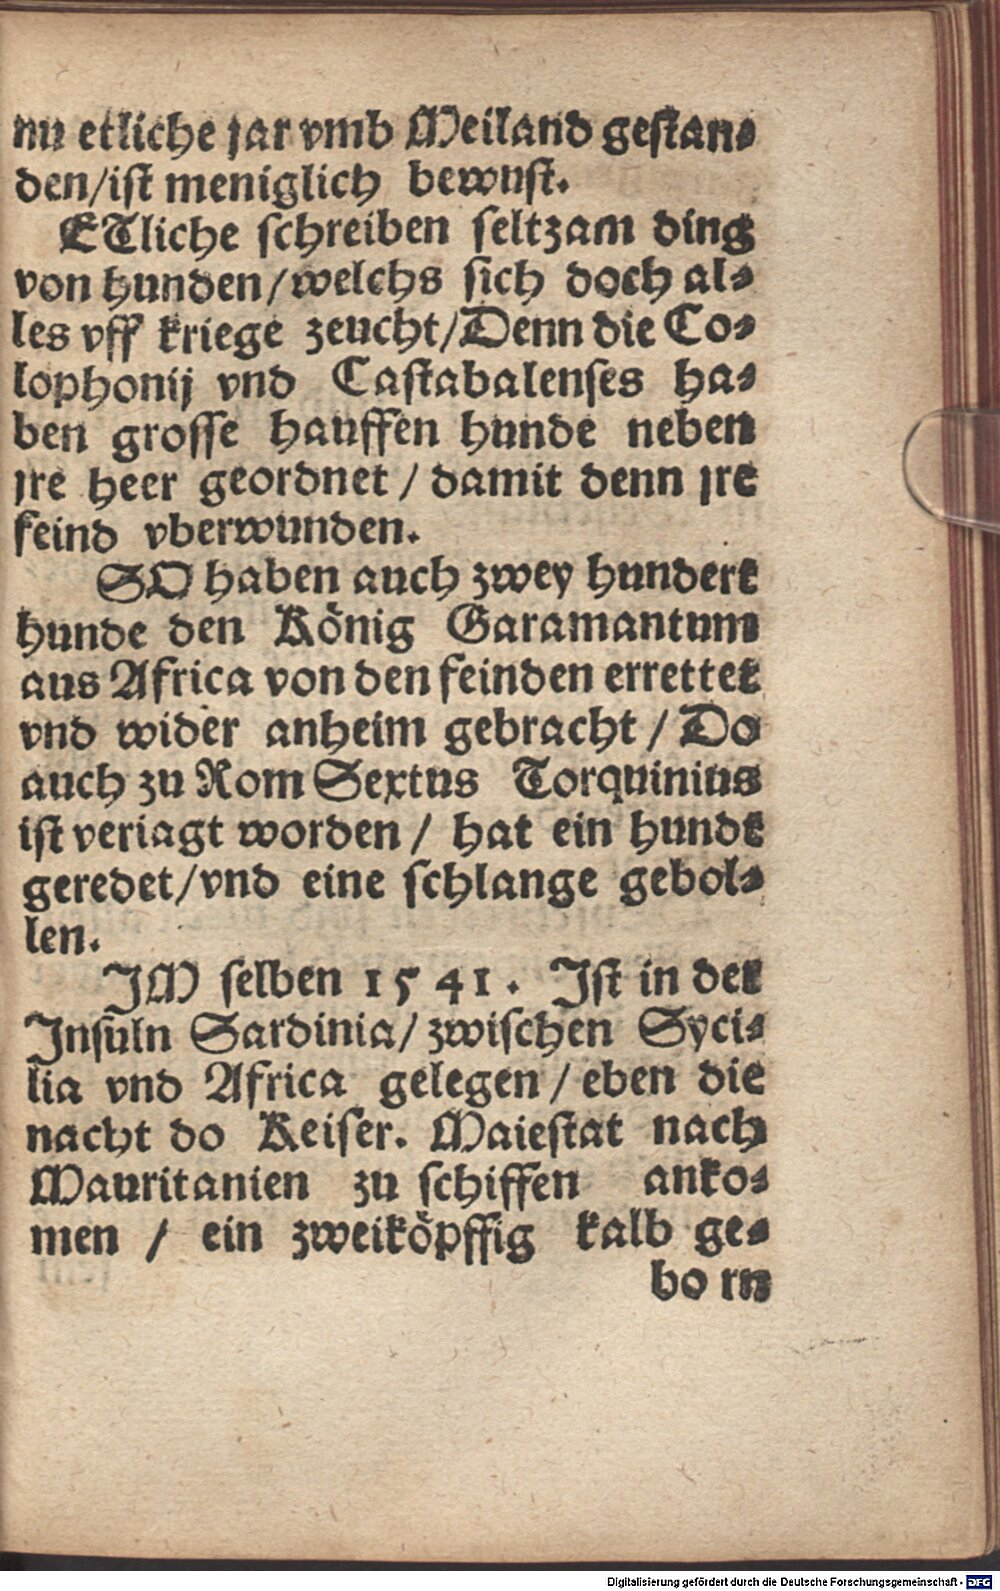 nu etliche jar vmb Meiland gestan-
den/ist meniglich bewust.
ETliche schreiben seltzam ding
von hunden/welchs sich doch al-
les vff kriege zeucht/Denn die Co-
lophonij vnd Castabalenses ha-
ben grosse hauffen hunde neben
jre heer geordnet / damit denn jre
feind vberwunden.
SO haben auch zwey hundert
hunde den König Garamantum
aus Africa von den feinden errettet
vnd wider anheim gebracht / Do
auch zu Rom Sextus Torquinius
ist veriagt worden / hat ein hundt
geredet/vnd eine schlange gebol-
len.
JM selben 1541. Jst in der
Jnsuln Sardinia/ zwischen Syci-
lia vnd Africa gelegen / eben die
nacht do Keiser. Maiestat nach
Mauritanien zu schiffen anko-
men / ein zweiköpffig kalb ge-
bo rn
Digitalisierung gefördert durch die Deutsche Forschungsgemeinschaft - DFG